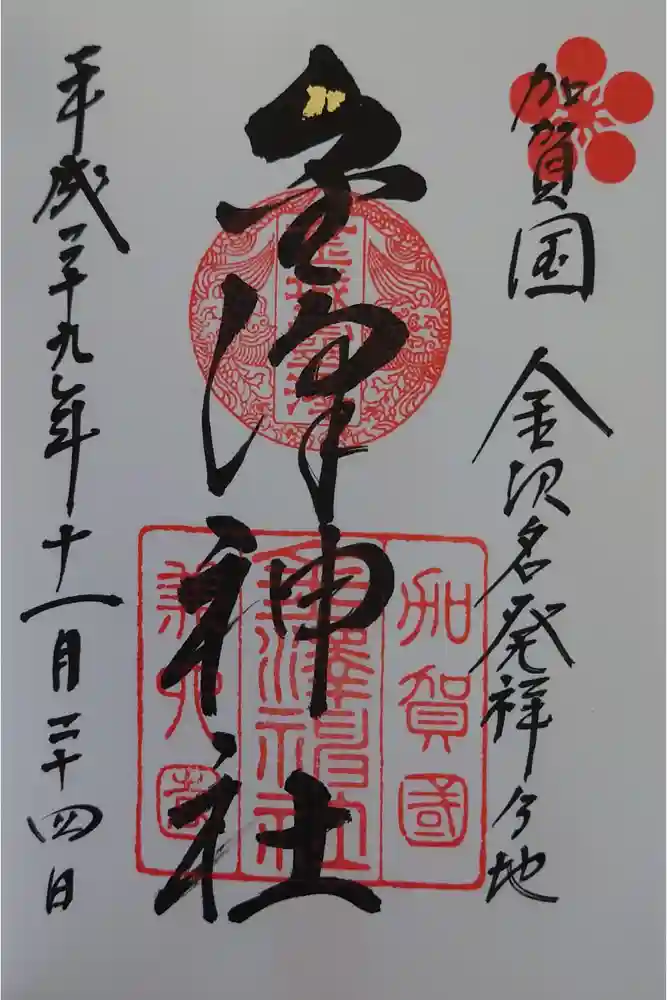 加賀国 金沢名発祥之地
金澤神社
平成二十九年十一月二十四日
金城霊澤
加賀國
金澤神社
兼六園